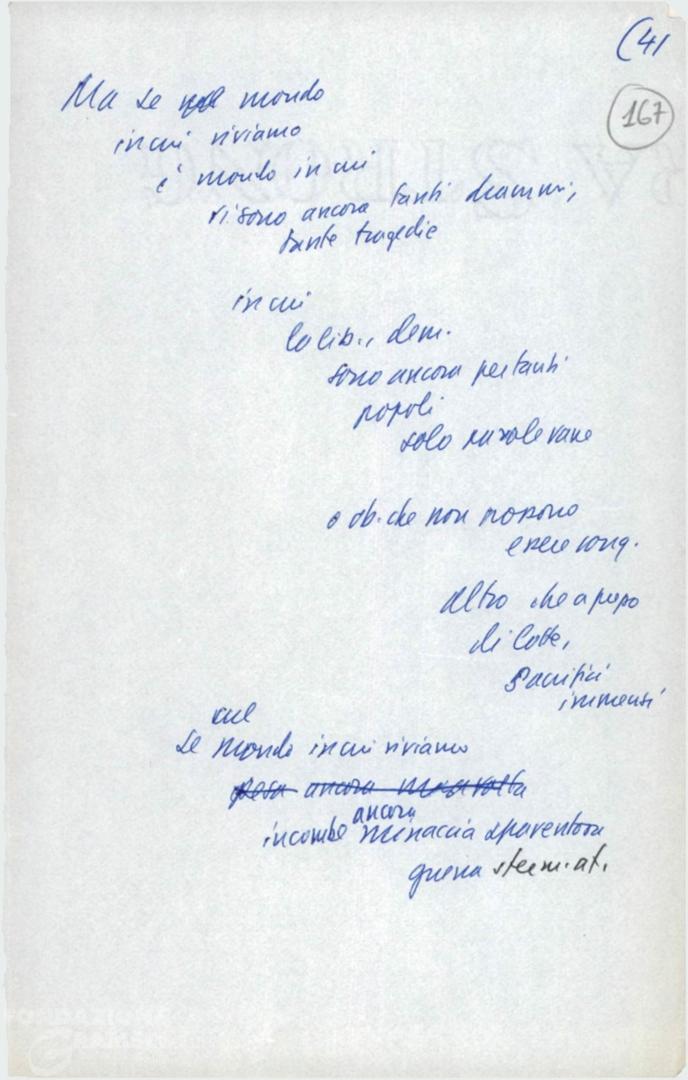 (41
167
Ma se nel mondo
in cui viviamo
è mondo in cui
vi sono ancora tanti drammi,
tante tragedie
in cui
la lib., dem.
sono ancora per tanti
popoli
solo parole vane
o ob. che non possono
essere cong.
altro che a prezzo
di lotte,
sacrifici
immensi
sul
se mondo in cui viviamo
pesa ancora
ancora
incombe minaccia spaventosa
guerra stermi.at.
FONDAZIONE
GRAMSCI